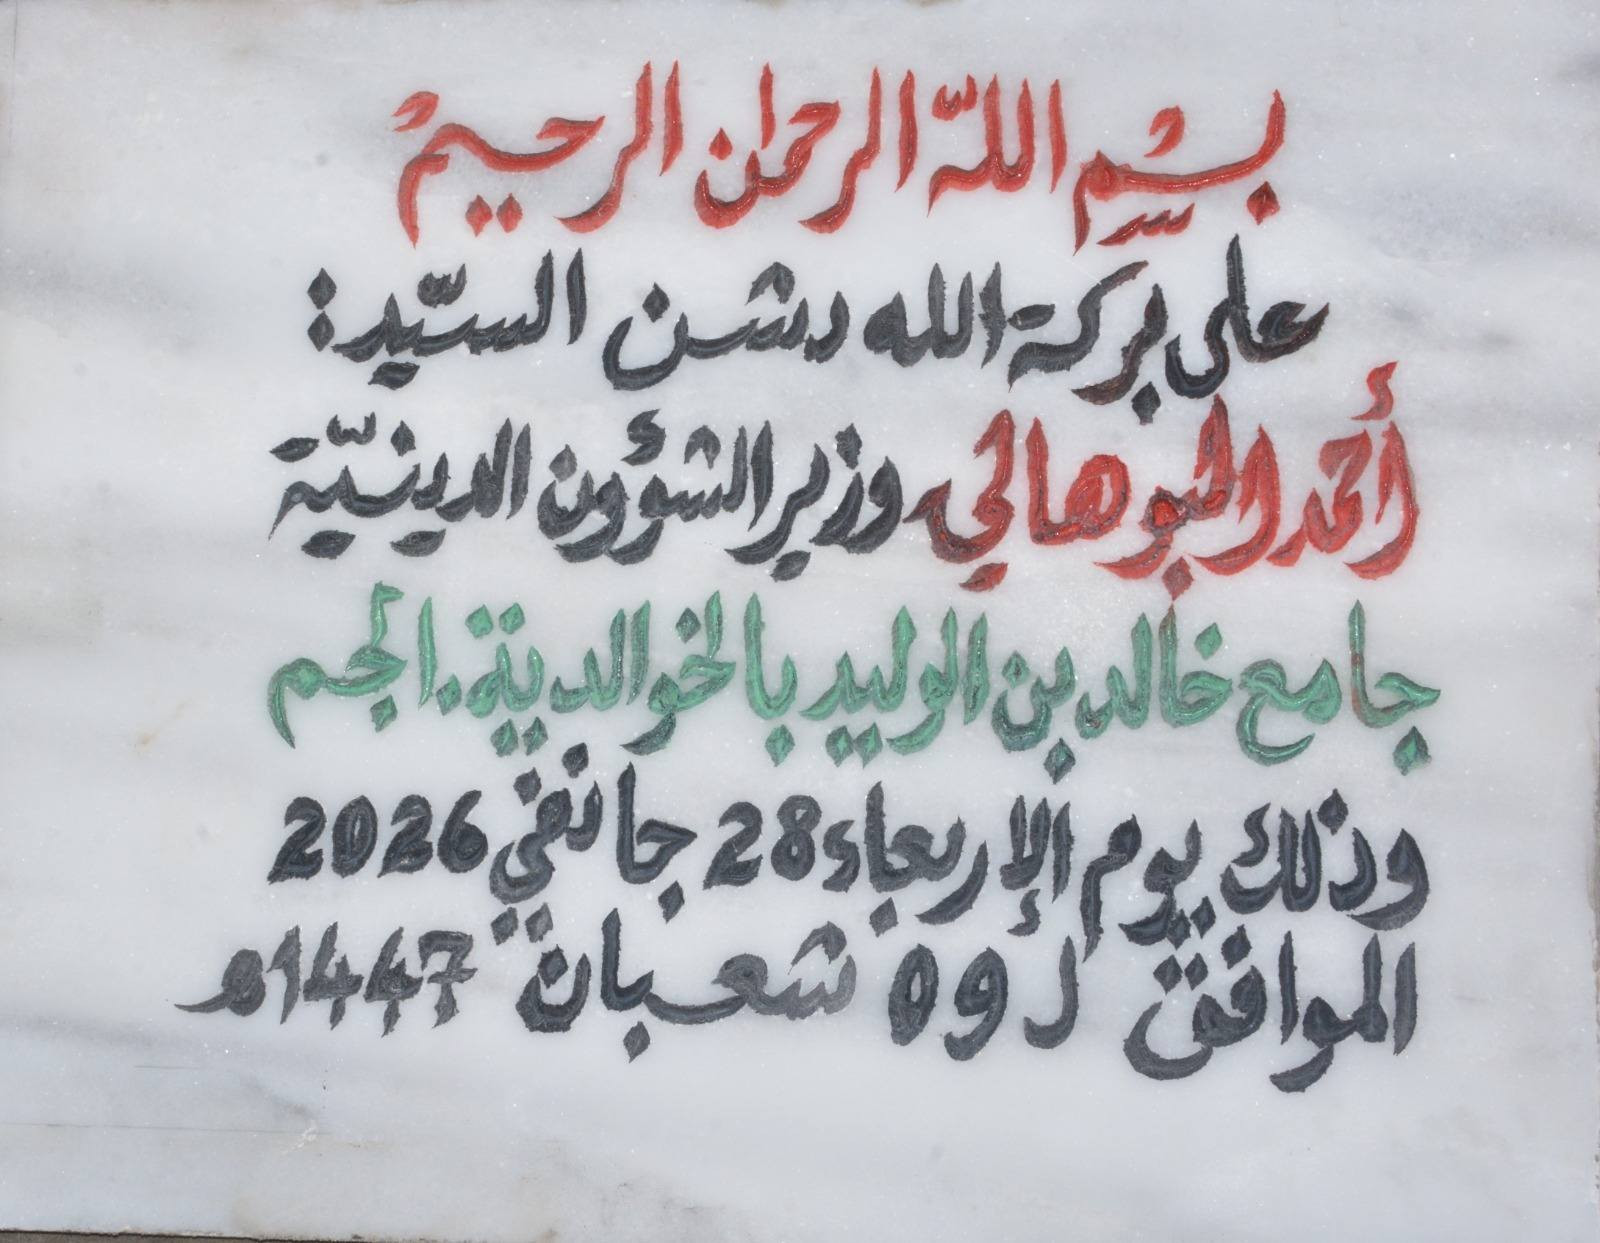 بِسْمِ اللّه الرحمان الرحيمْ
على بركة الله دشن السيّد:
أحمد البوهالي وزير الشؤون الدينيّة
جامع خالد بن الوليد بالخوالدية. الجم
وذلك يوم الإربعاء 28 جانفي 2026
الموافق لـ 09 شعبان 1447هـ